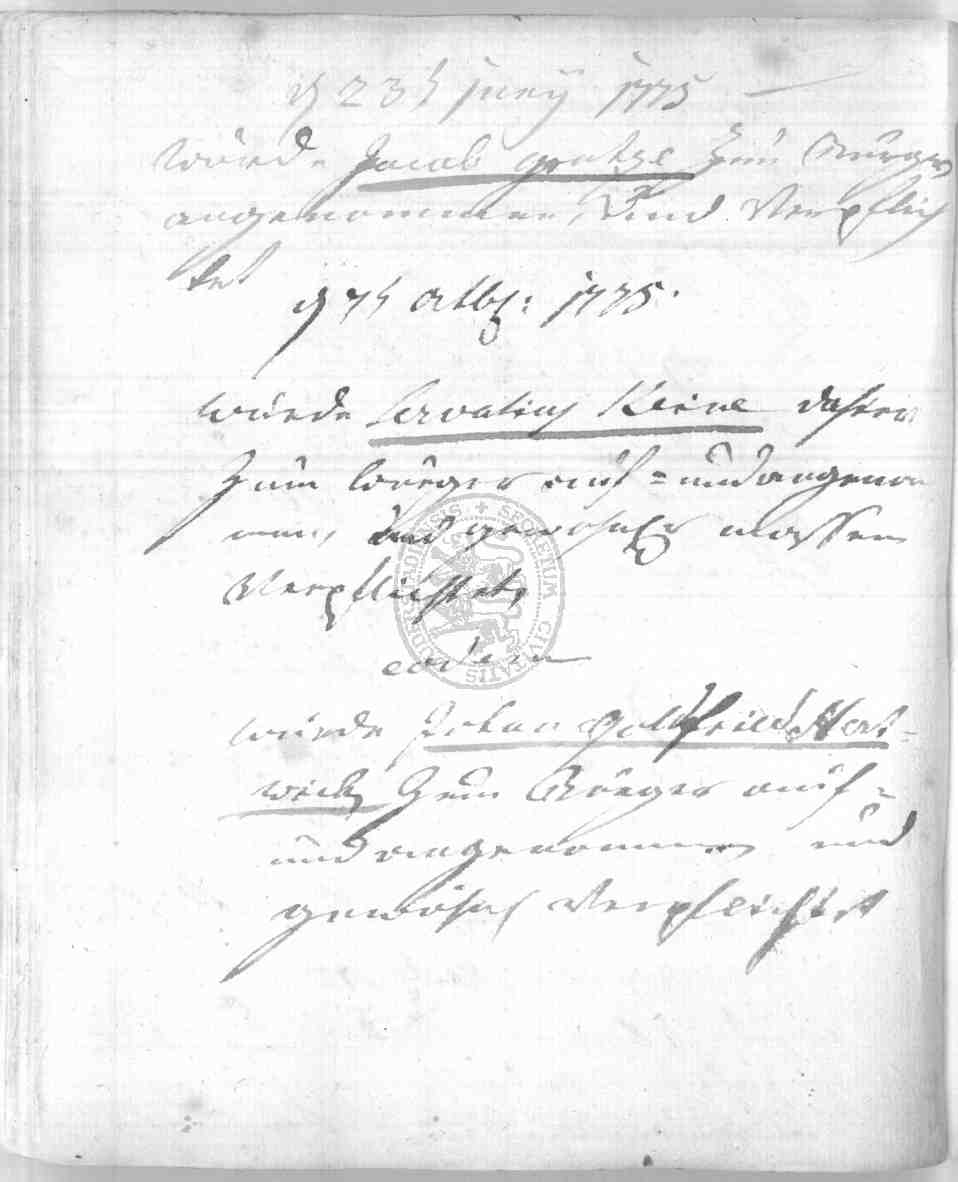 d 23t Juny 1775
wurde Jacob gratze Zum Bürger
angenommen, Und Verpflich
tet
d 7t 8tbr: 1775.
wurde Servatius Keine daher
Zum bürger auf = und angenom
men, und gewohnter massen
Verpflichtet,
eodem
wurde Johan Gottfried Hart=
wich Zum Bürger auf=
und angenommen und
gewöhnl Verpflichtet
SIGILLUM SECRETUM CIVITATIS DUDERSTADIENSIS